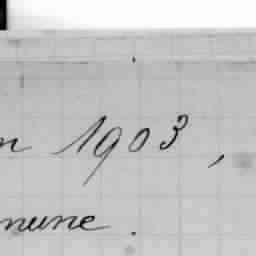 n 1903,
mune.